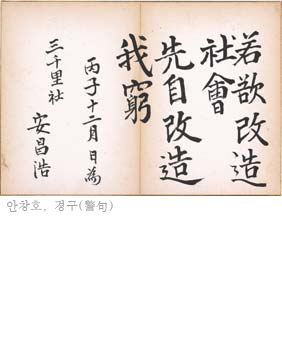 若欲改造
社會
先自改造
我窮
丙子十二月 日為
三千里社
安昌浩
안창호, 경구(警句)